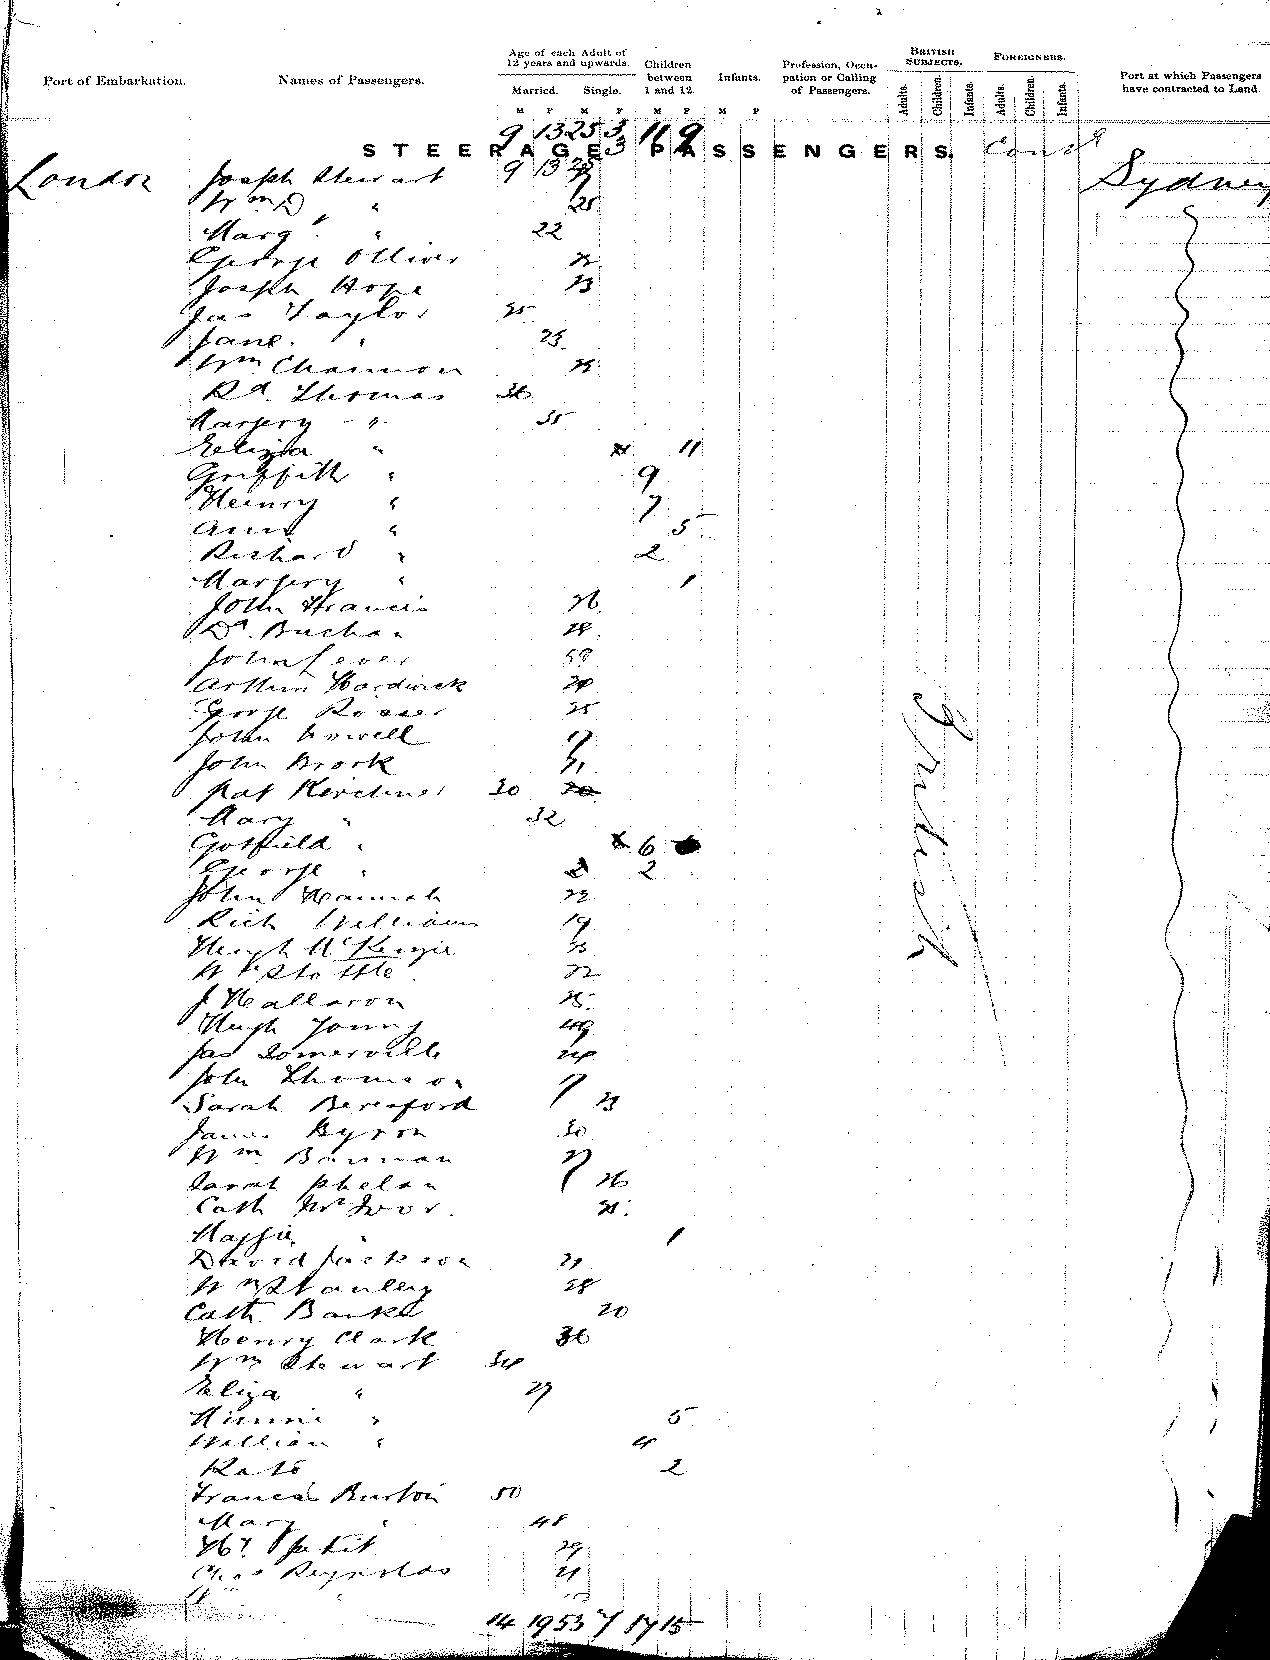 Port of Embarkation. Names of Passengers. Age of each Adult of 12 years and upwards. Married. Single. Children between 1 and 12. Infants. Profession, Occupation or Calling of Passengers. BRITISH SUBJECTS. Adults. Children. Infants. FOREIGNERS. Adults. Children. Infants. Port at which Passengers have contracted to Land.
M F M F M F M F
9 13 25 3 11 9
STEERAGE PASSENGERS. Contd
London Joseph Stewart 9 13 Sydney
Wm D " 25
Marg " 22
George Olliver
Joseph Hope 23
Jas Taylor 35
Jane " 25
Wm Channon 25
Rd Thomas 36
Margery " 35
Eliza " 11
Griffith " 9
Henry " 7
Ann " 5
Richard " 2
Margery " 1
John Francis 26
Dd Buchan 28
John Lever
Arthur Hardwick 24
George Rosser 25
John Howell 19
John Brook
Kat Kirchner 30 20
Mary " 32
Gotfield " 6
George " 2
John Hannah 22
Rich Williams 19
Hugh McKenzie 23
Wm Stottle 22
J Hallaron
Hugh Young 49
Jas Somerville 24
John Thomson
Sarah Beresford 23
James Byron 30
Wm Bannan 27
Sarah Phelan 26
Cath McIvor 21
Maggie " 1
David Jackson 21
Wm Stanley 28
Cath Barke 20
Henry Clark 36
Wm Stewart 34
Eliza " 29
Minnie " 5
William " 4
Kate 2
Francis Burton 50
Mary " 48
Hy Petit 29
Chas Reynolds 21
14 19 53 7 17 15
British